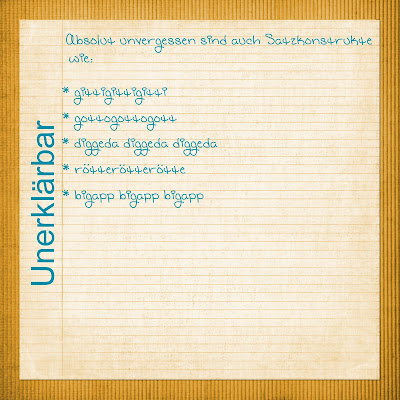 Absolut unvergessen sind auch Satzkonstrukte
wie:
* gittigittigitti
* gottogottogott
* diggeda diggeda diggeda
* rötterötterötte
* bigapp bigapp bigapp
Unerklärbar